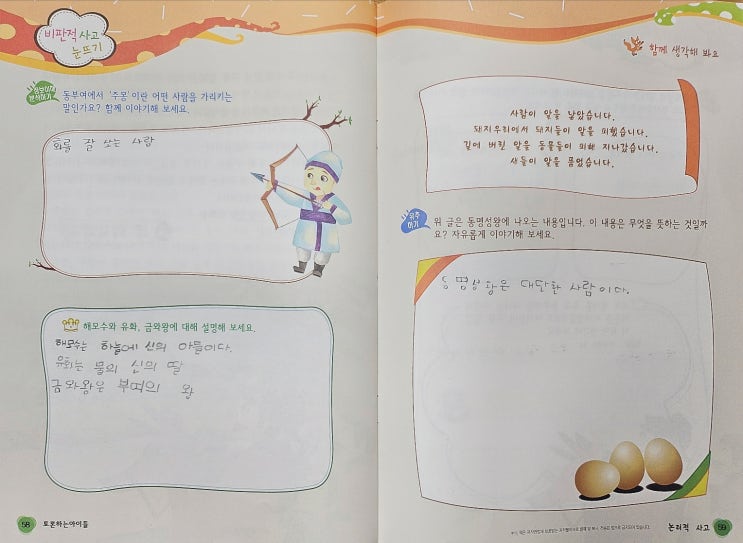 비판적 사고
눈뜨기
동부여에서 '주몽'이란 어떤 사람을 가리키는
말인가요? 함께 이야기해 보세요.
화를 잘 쏘는 사람
해모수와 유화, 금와왕에 대해 설명해 보세요.
해모수는 하늘에 신의 아들이다.
유화는 물의 신의 딸
금와왕은 부여의 왕
58 토론하는아이들
함께 생각해 봐요
사람이 알을 낳았습니다.
돼지우리에서 돼지들이 알을 피했습니다.
길에 버린 알을 동물들이 피해 지나갔습니다.
새들이 알을 품었습니다.
유추
하기
위 글은 동명성왕에 나오는 내용입니다. 이 내용은 무엇을 뜻하는 것일까
요? 자유롭게 이야기해 보세요.
동명성왕은 대단한 사람이다.
논리적 사고 59